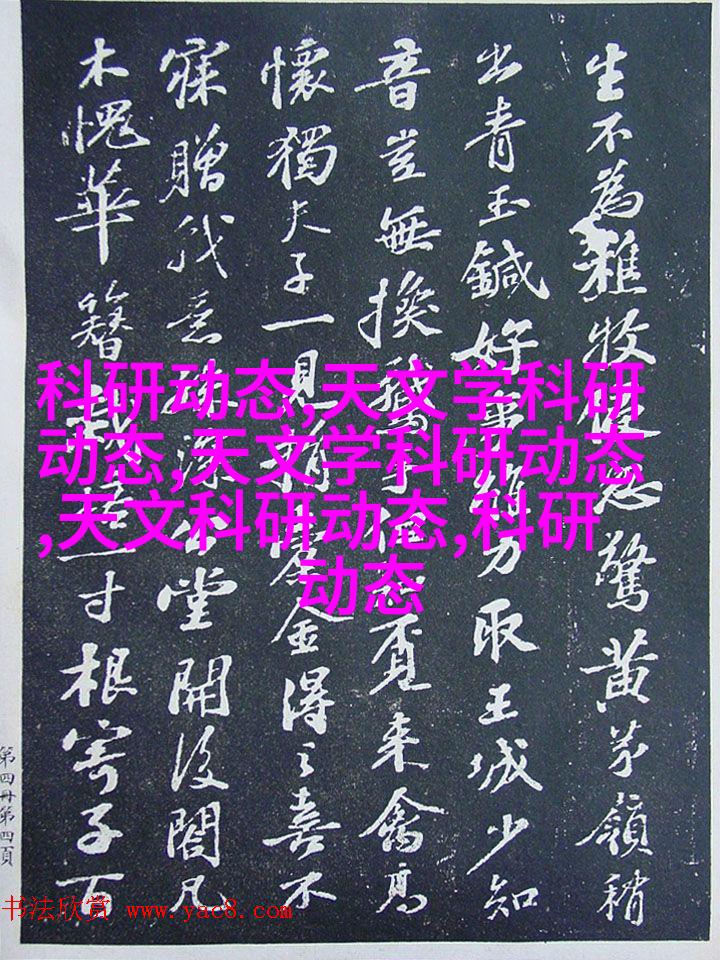 生不為雅牧
驚黃茅嶺稍
出青玉鍼好事
力取王城少知
音豈無換鵝手
賣來禽高
懷獨夫子一見捐
金得之喜不
寐贈我意
深公堂開後閣凡
木愧華簪
一寸根寄子百
科研动态,天文学科研
动态,天文学科研动态
,天文科研动态,科研
动态
第四冊第四頁
书法欣赏 www.yac8.com